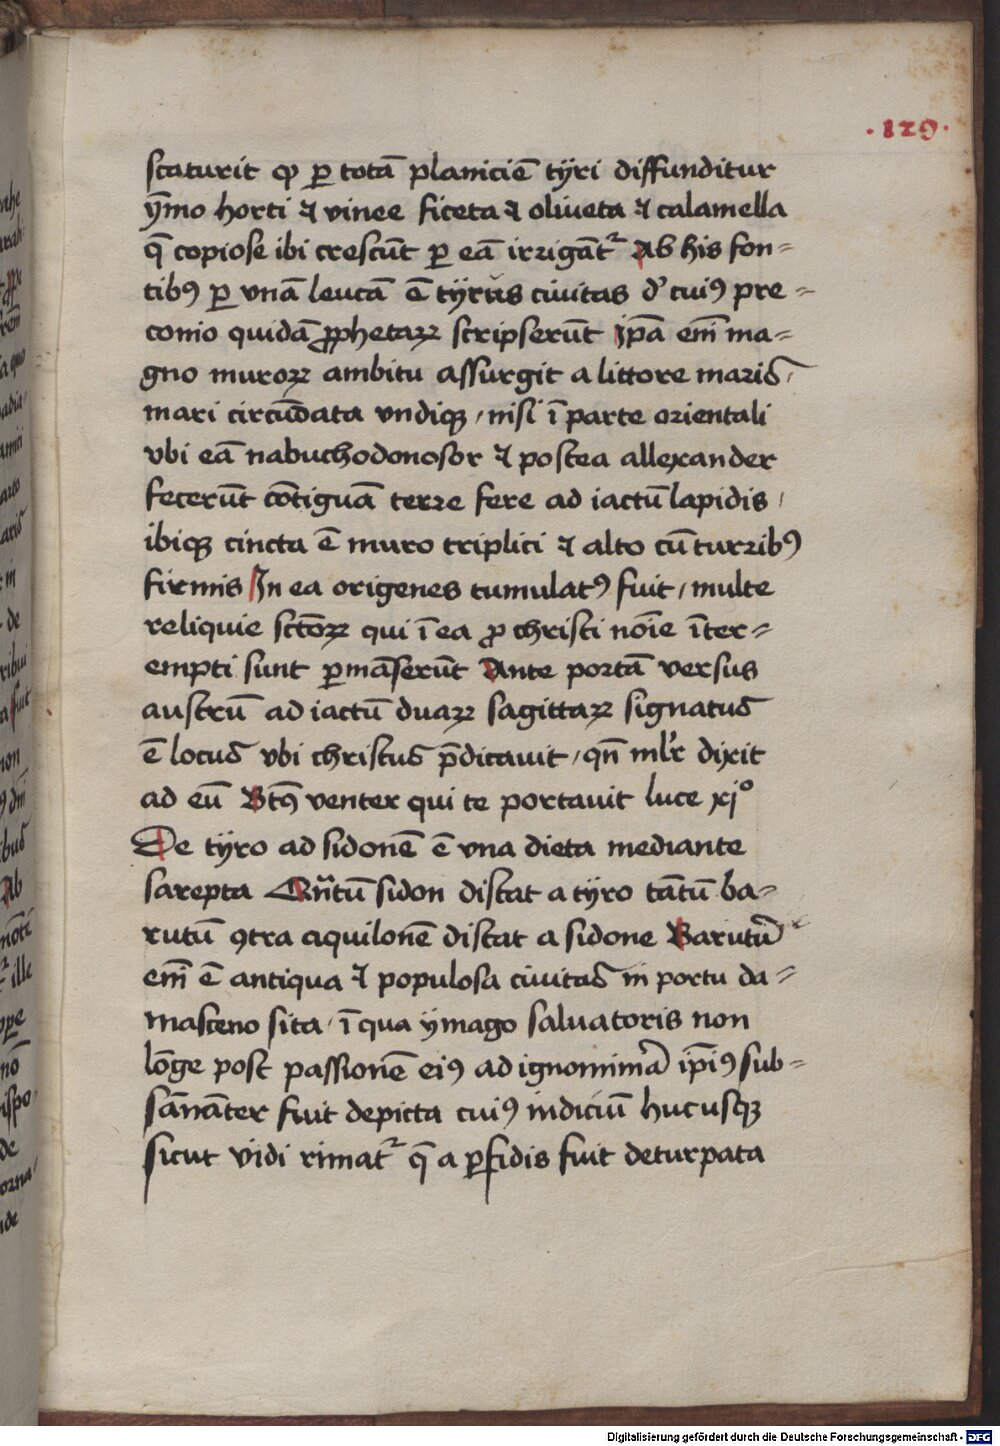 ·129·
scaturit qͥ ꝑ totā planiciē tÿri diffunditur
ÿmo horti ⁊ vinee ficeta ⁊ oliueta ⁊ calamella
q̄ copiose ibi crescūt ꝑ eā irrigāt᷑ Ab his fon=
tibꝰ ꝑ vnā leucā ē tÿrus ciuitas d' cuiꝰ pre=
conio quidā ꝓphetaꝝ scripserūt ip̄a em̄ ma=
gno muroꝝ ambitu assurgit a littore maris/
mari circūdata vndiqꝫ / nisi ī parte orientali
vbi eā nabuchodonosor ⁊ postea allexander
fecerūt cōtiguā terre fere ad iactū lapidis /
ibiqꝫ cincta ē muro triplici ⁊ alto cū turribꝰ
firmis In ea origenes tumulatꝰ fuit / multe
reliquie sctōꝝ qui ī ea ꝓ christi noīe īter=
empti sunt ꝑmāserūt Ante portā versus
austrū ad iactū duaꝝ sagittaꝝ signatus
ē locus vbi christus p̄dicauit / qn̄ ml'r dixit
ad eū Btꝰ venter qui te portauit luce xjº
De tÿro ad sidonē ē vna dieta mediante
sarepta Qn̄tū sidon distat a tÿro tātū ba=
rutū ꝯtra aquilonē distat a sidone Barutū
em̄ ē antiqua ⁊ populosa ciuitas in portu da=
masceno sita / ī qua ÿmago saluatoris non
lōge post passionē eiꝰ ad ignominiā ip̄iꝰ sub=
sānāter fuit depicta cuiꝰ indiciū hucusqꝫ
sicut vidi rimat᷑ q̄ a ꝑfidis fuit deturpata
Digitalisierung gefördert durch die Deutsche Forschungsgemeinschaft - DFG